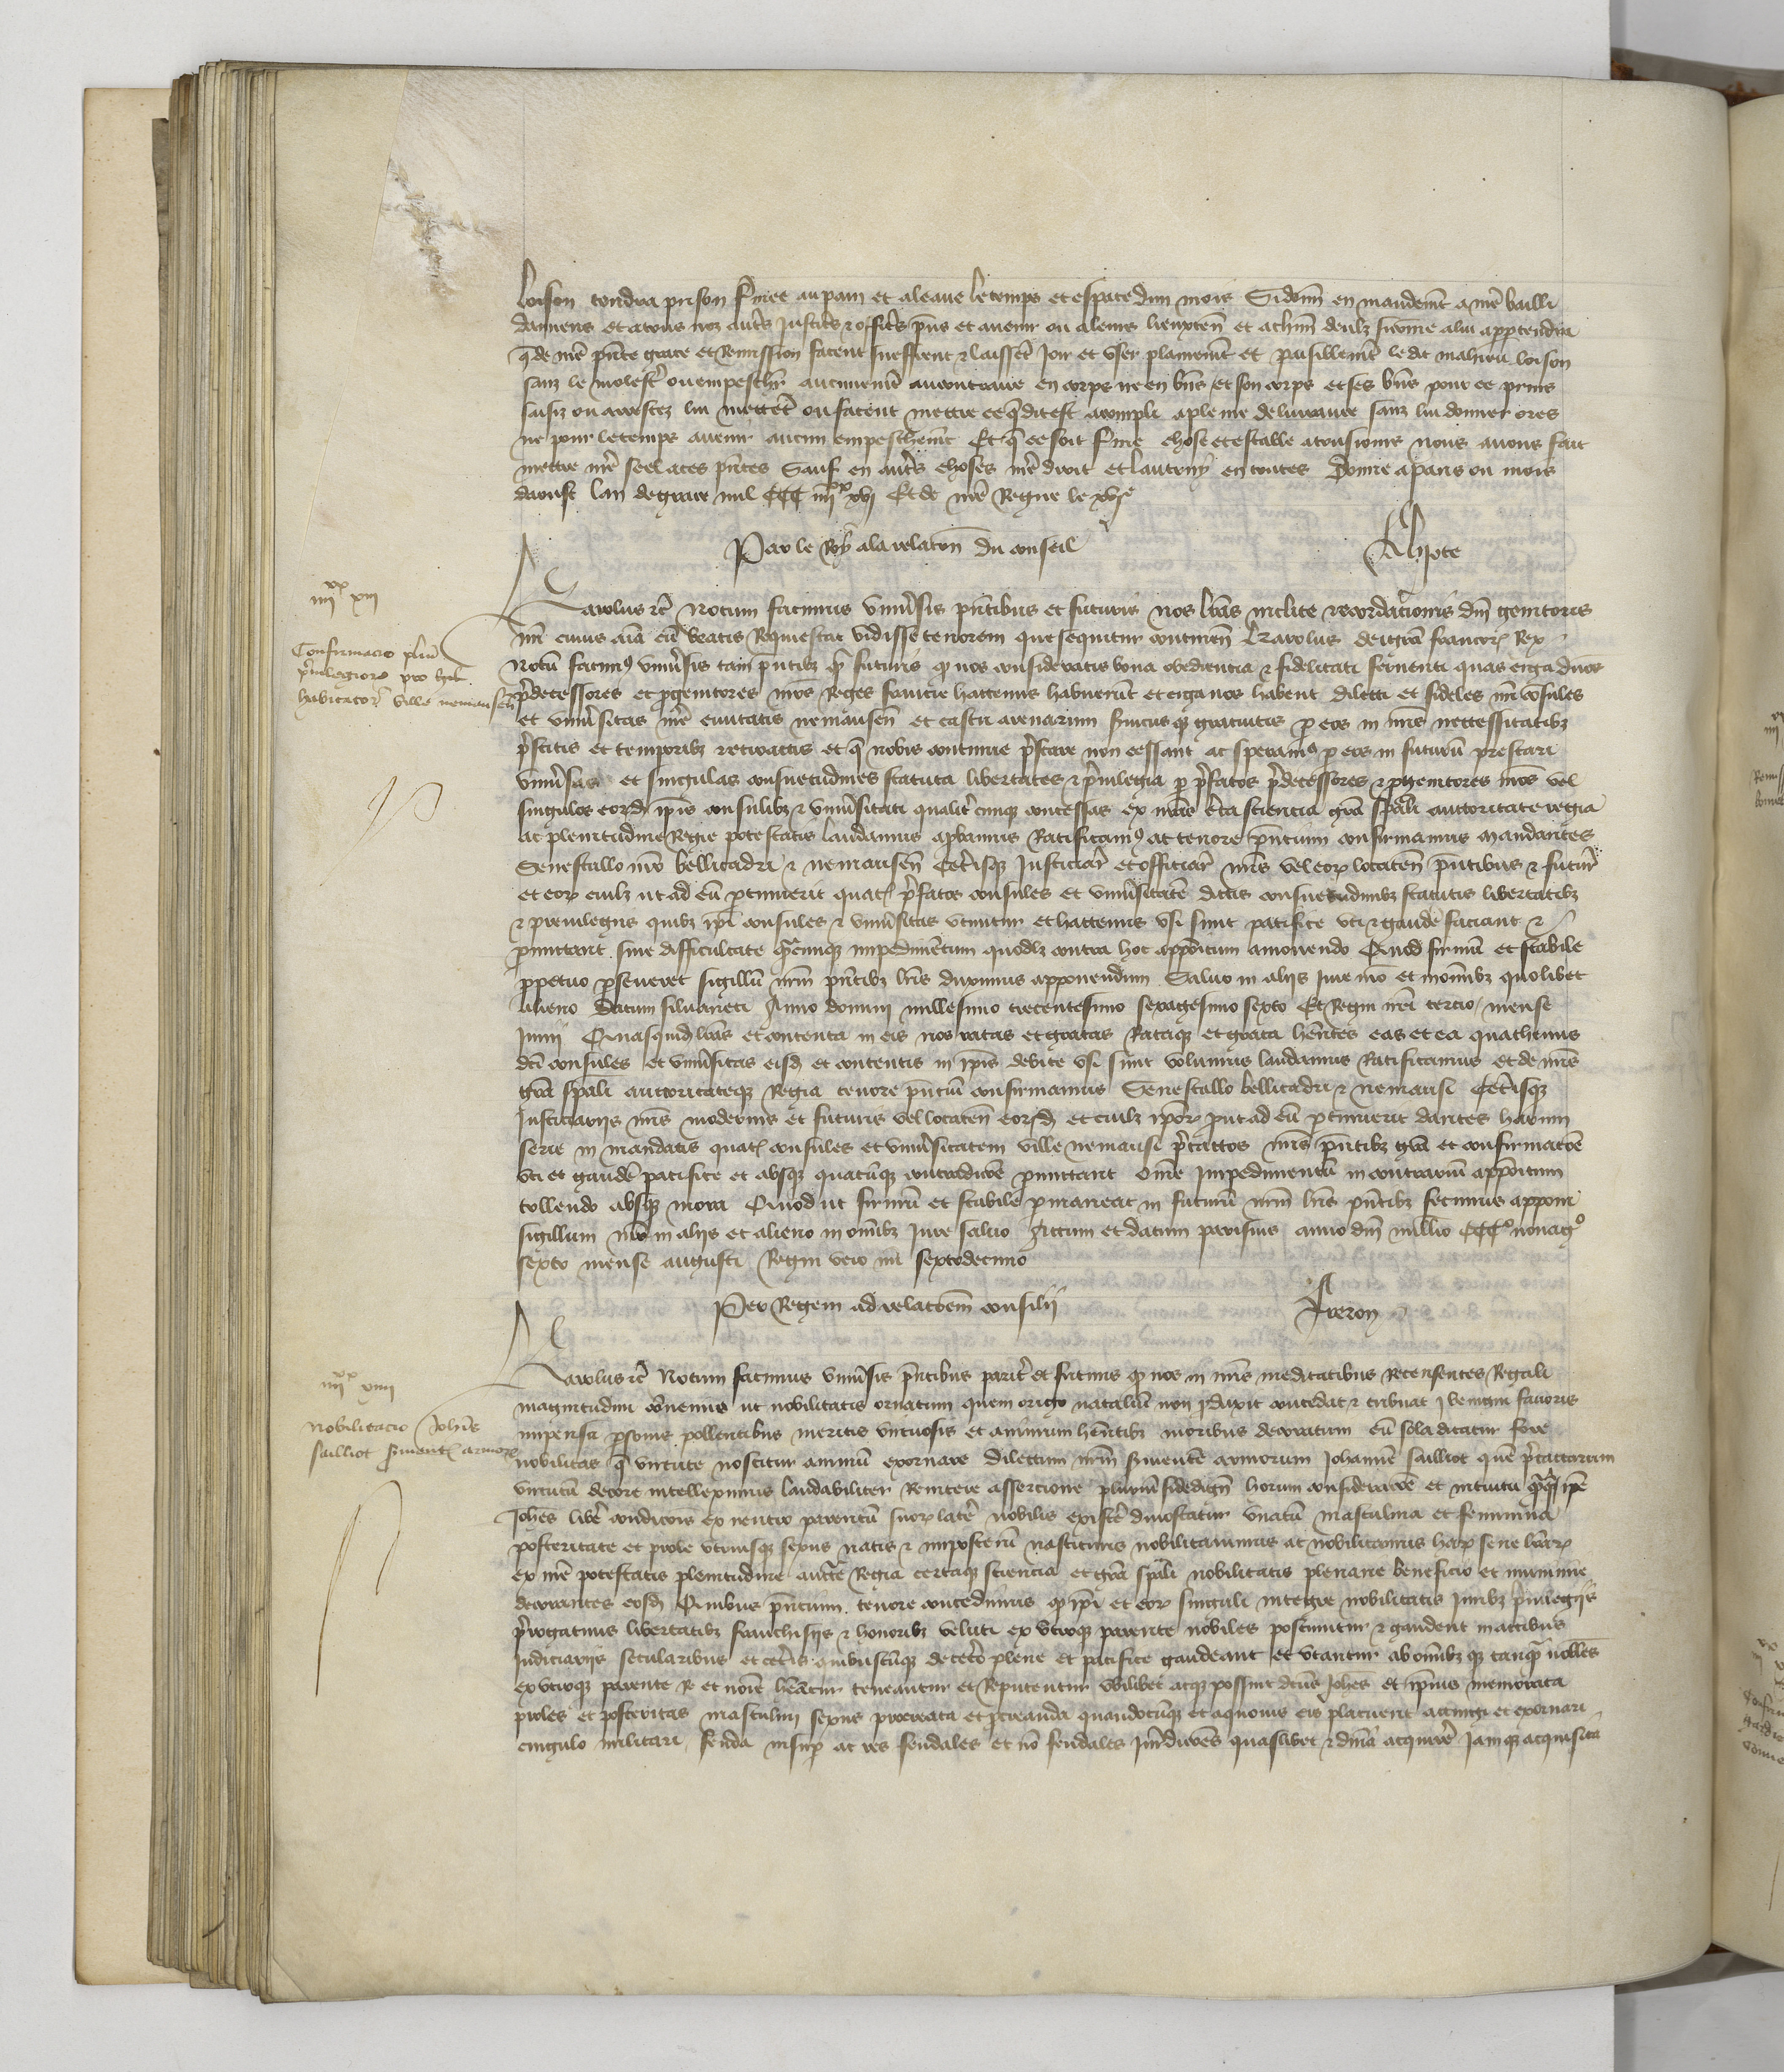 loison tendra prison fermee au pain et a leaue le temps et espace dun mois Si donnons en mandement a nostre bailli
damiens et a tous noz autres justiciers et officiers presens et avenir ou a leurs lieuxtenans et a chascun deulz si comme a lui appartendra
que de nostre presente grace et Remission facent sueffrent et laissent joir et user plainement et paisiblement le dit mahieu loison
sanz le molester ou empescher aucunement au contraire en corps ne en biens et son corps et ses biens pour ce prins
saisiz ou arrestez lui mettent ou facent mettre ce que dit est acompli a pleine delivrance sanz lui donner ores
ne pour le temps avenir aucun empeschement Et que ce soit ferme chose et estable a tousjours nous avons fait
mettre nostre seel a ces presentes Sauf en autres choses nostre droit et lautruy en toutes Donne a paris ou mois
daoust lan de grace mil CCC iiijxx xvj Et de nostre Regne le xvje
Par le Roy a la relacion du conseil
iiijxx xiij
Confirmacio plurium
privilegiorum pro
habitatoribus ville nemausensis
Karolus etc Notum facimus universis presentibus et futuris nos literas inclite recordacionis domini genitoris
nostri cuius anima cum beatis Requiescat vidisse tenorem que sequitur continentes Karolus dei gracia francorum Rex
Notum facimus universis tam presentibus quam futuris quod nos consideratis bona obediencia et fidelitati ferventi quas erga dominos
predecessores et progenitores nostros Reges francie hactenus habuerunt et erga nos habent dilecti et fideles nostri consules
et universitas nostre civitatis nemausensis et castri arenarum serviciisque gratuitis per eos in nostris neccessitatibus
prestitis et temporibus retroactis et que nobis continue prestare non cessant ac speramus per eos in futurum prestari
universas et singulas consuetudines statuta libertates et privilegia per prefatos predecessores et progenitores nostros vel
singulos eorumdem ipsis consulibus et universitati qualitercunque concessas ex nostris certa sciencia gracia speciali auctoritate regia
ac plenitudine Regie potestatis laudamus approbamus Ratificamus ac tenore presentium confirmamus Mandantes
Senescallo nostro bellicadri et nemausensis Ceterisque justiciariis et officiariis nostris vel eorum locatenentibus presentibus et futuris
et eorum cuilibet ut ad eum pertinuerit quatenus prefatos consules et universitatem dictis consuetudinibus statutis libertatibus
et privilegiis quibus ipsi consules et universitas utuntur et hactenus usi sunt pacifice uti et gaudere faciant et
permittant sine difficultate quacunque impedimentum quodlibet contra hoc appositum amovendo Quod firmum et stabile
perpetuo perseveret sigillum nostrum presentibus literis duximus apponendum Salvo in aliis jure nostro et in omnibus quolibet
alieno Datum silvaneti Anno domini millesimo trecentesimo sexagesimo sexto Et Regni nostri tercio mense
Junii Quasquidem literas et contenta in eis nos ratas et gratas Rataque et grata habentes eas et ea quathenus
dicti consules et universitas eisdem et contentis in ipsis debite usi sunt volumus laudamus Ratificamus et de nostris
gracia speciali auctoritateque Regia tenore presentium confirmamus Senescallo bellicadri et nemausi Ceterisque
Justiciariis nostris modernis et futuris vel locatenentibus eorumdem et cuilibet ipsorum prout ad eum pertinuerit dantes harum
serie in mandatis quatenus consules et universitatem ville nemausi pretactos nostris presentibus gracia et confirmacione
uti et gaudere pacifice et absque quacunque contradicione permittant Omne impedimentum in contrarium appositum
tollendo absque mora Quod ut firmum et stabile permaneat in futurum nostrum literis presentibus fecimus apponi
sigillum nostro in aliis et alieno in omnibus Jure salvo Actum et datum parisius anno domini millesimo CCCo nonagesimo
sexto mense augusti Regni vero nostri sextodecimo
Per Regem ad relacionem consilii Freron
iiijxx xiiij
Nobilitacio Johannis
sailliot servientis armorum
Karolus etc Notum facimus universis presentibus pariter et futuris quod nos in nostris meditatibus Recensentes Regali
magnitudini convenire ut nobilitatis ornatum quem origo natalium non perduxit concedat et tribuat benigni favoris
impensa personis pollentibus meritis virtuosis et animum habentibus moribus decoratum cum sola dicatur fore
nobilitas que virtute noscitur animum exornare Dilectum nostrum servientem armorum Johannem sailliot quem pretactarum
virtutum decore intelleximus laudabiliter Renitere assercione plurium fidedignorum horum consideracione et intuitu quamquam ipse
Johannes libere condicionis ex neutro parentum suorum latere nobilis existere dinoscatur una cum masculina et feminina
posteritate et prole utriusque sexus natis et imposterum nascituris nobilitavimus ac nobilitamus harum serie literarum
ex nostre potestatis plenitudine auctoritate Regia certaque sciencia et gracia speciali nobilitatis plenarie beneficio et munimine
decorantes eosdem Quibus presentium tenore concedimus quod ipsi et eorum singuli integre nobilitatis juribus privilegiis
prerogativis libertatibus franchisiis et honoribus veluti ex utroque parente nobiles potiuntur et gaudent in actibus
judiciariis secularibus et ceteris quibuscunque decetero plene et pacifice gaudeant et utantur ab omnibusque tanquam nobiles
ex utroque parente Re et nomine habeantur teneantur et Reputentur ubilibet atque possint dictus Johannes et ipsius memorata
proles et posteritas masculini sexus procreata et procreanda quandocunque et a quovis eis placuerit accingi et exornari
cingulo militari feuda insuper ac res feudales et non feudales jurisdiciones quaslibet et dominia acquirere jamque acquisita